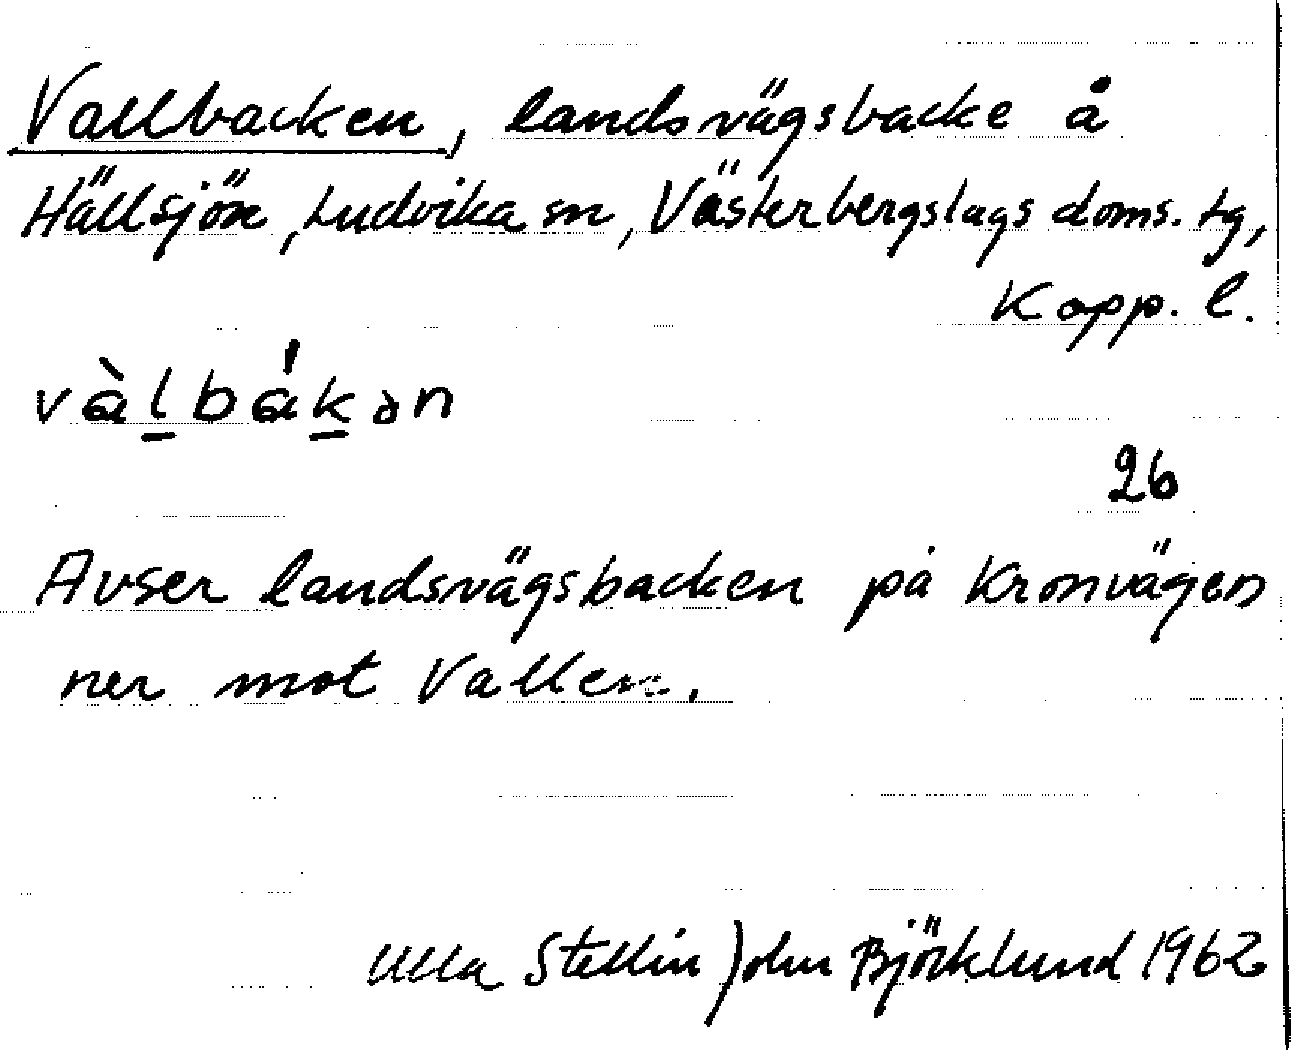 Vallbacken, landsvägsbacke å
Hällsjön, Ludvika sn, Västerbergslags doms. tg,
Kopp. l.
vàlbákən
26
Avser landsvägsbacken på Kronvägen
ner mot Vallen.
Ulla Stellin John Björklund 1962